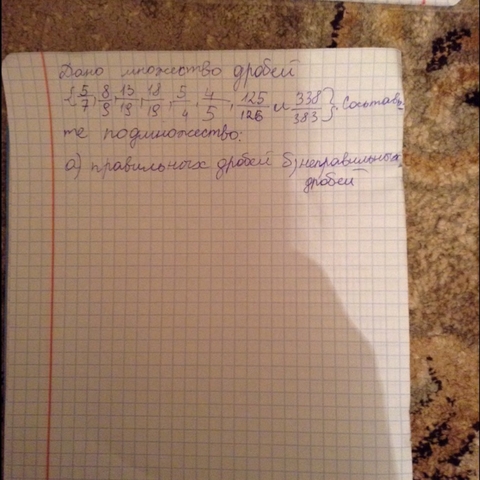 Дано множество дробей
{5/7, 8/9, 13/19, 18/19, 5/4, 4/5, 125/126 и 338/383}. Составь
те подмножество:
а) правильных дробей б) неправильных
дробей